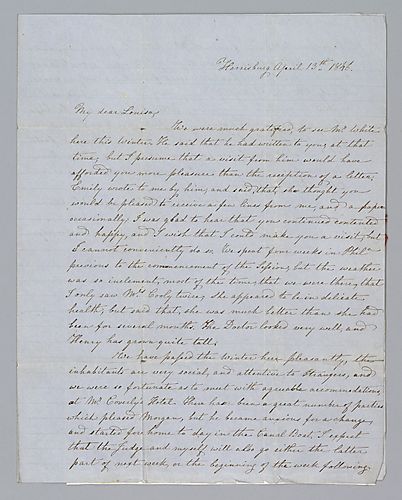 Harrisburg April 13th 1846.
My dear Louisa,
We were much gratified to see Mr White
here this Winter. He said that he had written to you, at that
time, but I presume that a visit from him would have
afforded you more pleasure than the reception of a letter,
Emily wrote to me by him, and said, that she thought you
would be pleased to receive a few lines from me, and a paper
occasionally. I was glad to hear that you continued contented
and happy, and I wish that I could make you a visit, but
I cannot conveniently do so. We spent four weeks in Phila
previous to the commencement of the Session, but the weather
was so inclement, most of the time, that we were there, that
I only saw Mrs Cooly twice, she appeared to be in delicate
health, but said that, she was much better than she had
been for several months. The Doctor looked very well, and
Henry has grown quite tall.
We have passed the Winter here pleasantly, the
inhabitants are very social, and attentive to strangers, and
we were so fortunate as to meet with agreeable accommodations,
at Mr Coverly's Hotel. There has been a great number of parties
which pleased Morgan, but he became anxious for a change,
and started for home to day in the Canal Boat, I expect
that the Judge and myself will also go either the latter
part of next week, or the beginning of the week following.